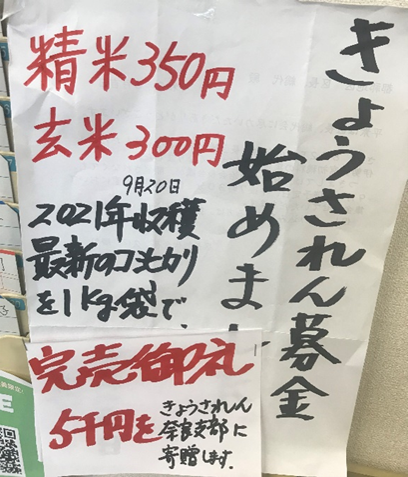 きょうされん募金
始めま
精米350円
玄米300円
9月20日
2021年収穫
最新のコシヒカリ
を1kg袋で
完売御礼
5千円を
きょうされん
奈良支部に
寄贈します.